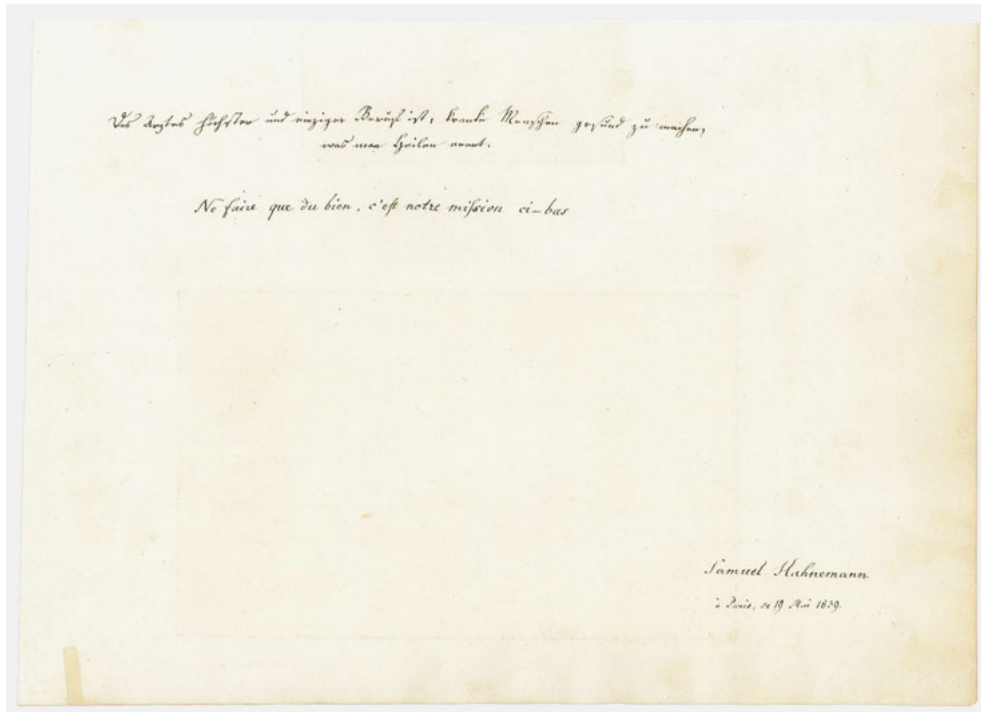 Des Arztes höchster und einziger Beruf ist, kranke Menschen gesund zu machen,
was man Heilen nennt.
Ne faire que du bien, c'est notre mission ci-bas
Samuel Hahnemann
à Paris, ce 19 Mai 1839.